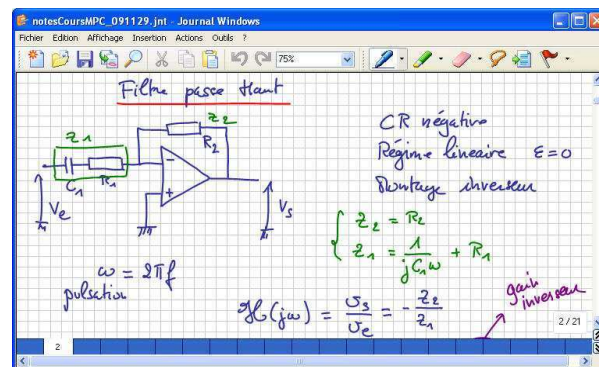 notesCoursMPC_091129.jnt - Journal Windows
Fichier Edition Affichage Insertion Actions Outils ?
75%
Filtre passe Haut
Z1
C1
R1
Z2
R2
-
+
Ve
Vs
CR négative
Régime lineaire ε=0
Montage inverseur
Z2 = R2
Z1 = 1/(jC1ω) + R1
ω = 2πf
pulsation
H(jω) = vs/ve = - Z2/Z1
gain
inverseur
2
2 / 21